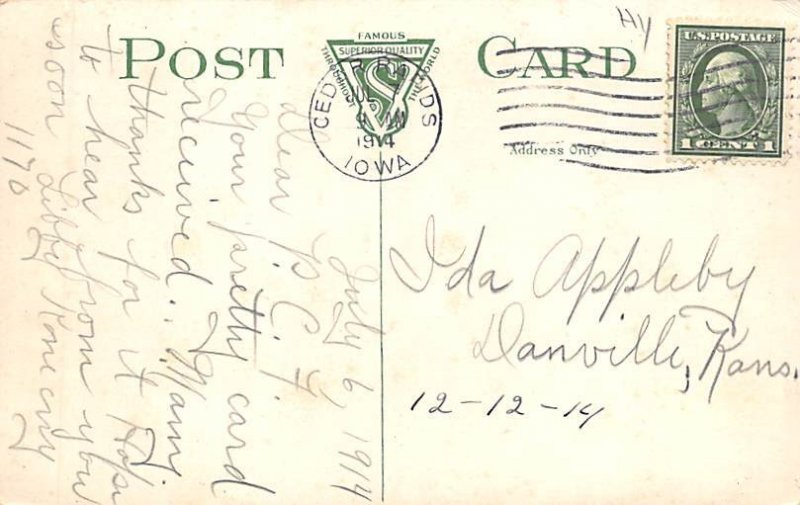 POST CARD
FAMOUS
SUPERIOR QUALITY
THROUGHOUT THE WORLD
CEDAR RAPIDS
JUL
9 AM
1914
IOWA
U.S. POSTAGE
1 CENT 1
Address Only
July 6, 1914
Dear P.C.F
Your pretty card
received.. Many
thanks for it Hope
to hear from you
soon Libby Konecny
1170
Ida Appleby
Danville, Kans.
12-12-14